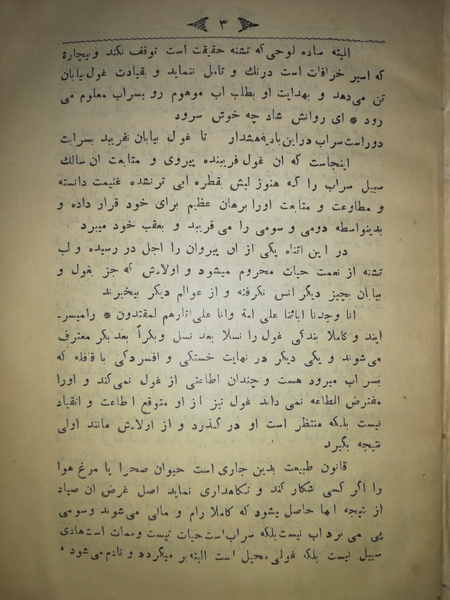 ۳
البته ساده لوحی که تشنه حقیقت است توقف نکند و بیچارۀ
که اسیر خرافات است درنك و تامل ننماید و بقیادت غول بیابان
تن می‌دهد و بهدایت او بطلب اب موهوم رو بسراب معلوم می
رود * ای روانش شاد چه خوش سرود
دوراست سراب دراین بادیه هشدار تا غول بیابان نفریبد بسرابت
اینجاست که ان غول فریبنده پیروی و متابعت ان سالك
سبیل سراب را که هنوز لبش بقطره ابی تر نشده غنیمت دانسته
و مطاوعت و متابعت اورا برهان عظیم برای خود قرار داده و
بدینواسطه دومی و سومی را می فریبد و بعقب خود میبرد
در این اثناء یکی از ان پیروان را اجل در رسیده و لب
تشنه از نعمت حیات محروم میشود و اولادش که جز بغول و
بیابان بچیز دیگر انس نگرفته و از عوالم دیگر بیخبرند
انا وجدنا ابائنا علی امة وانا علی اثارهم لمقتدون * رامیسر۔
ایند و کاملا بندکی غول را نسلا بعد نسل وبکراً بعد بکر معترف
می‌شوند و یکی دیگر در نهایت خستکی و افسردکی با قافله که
بسراب میرود هست و چندان اطاعتی از غول نمی‌کند و اورا
مفترض الطاعه نمی داند غول نیز از او متوقع اطاعت و انقیاد
نیست بلکه منتظر است او در کذرد و از اولادش مانند اولی
نتیجه بگیرد
قانون طبیعت بدین جاری است حیوان صحرا یا مرغ هوا
را اکر کسی شکار کند و نکاهداری نماید اصل غرض ان صیاد
از نتیجه انها حاصل یشود که کاملا رام و مالی می‌شوند وسومی
پی می برد اب نیست بلکه سراب است حیات نیست و ممات است هادی
سبیل نیست بلکه غولی محیل است البته بر میکردد و نادم می‌شود *